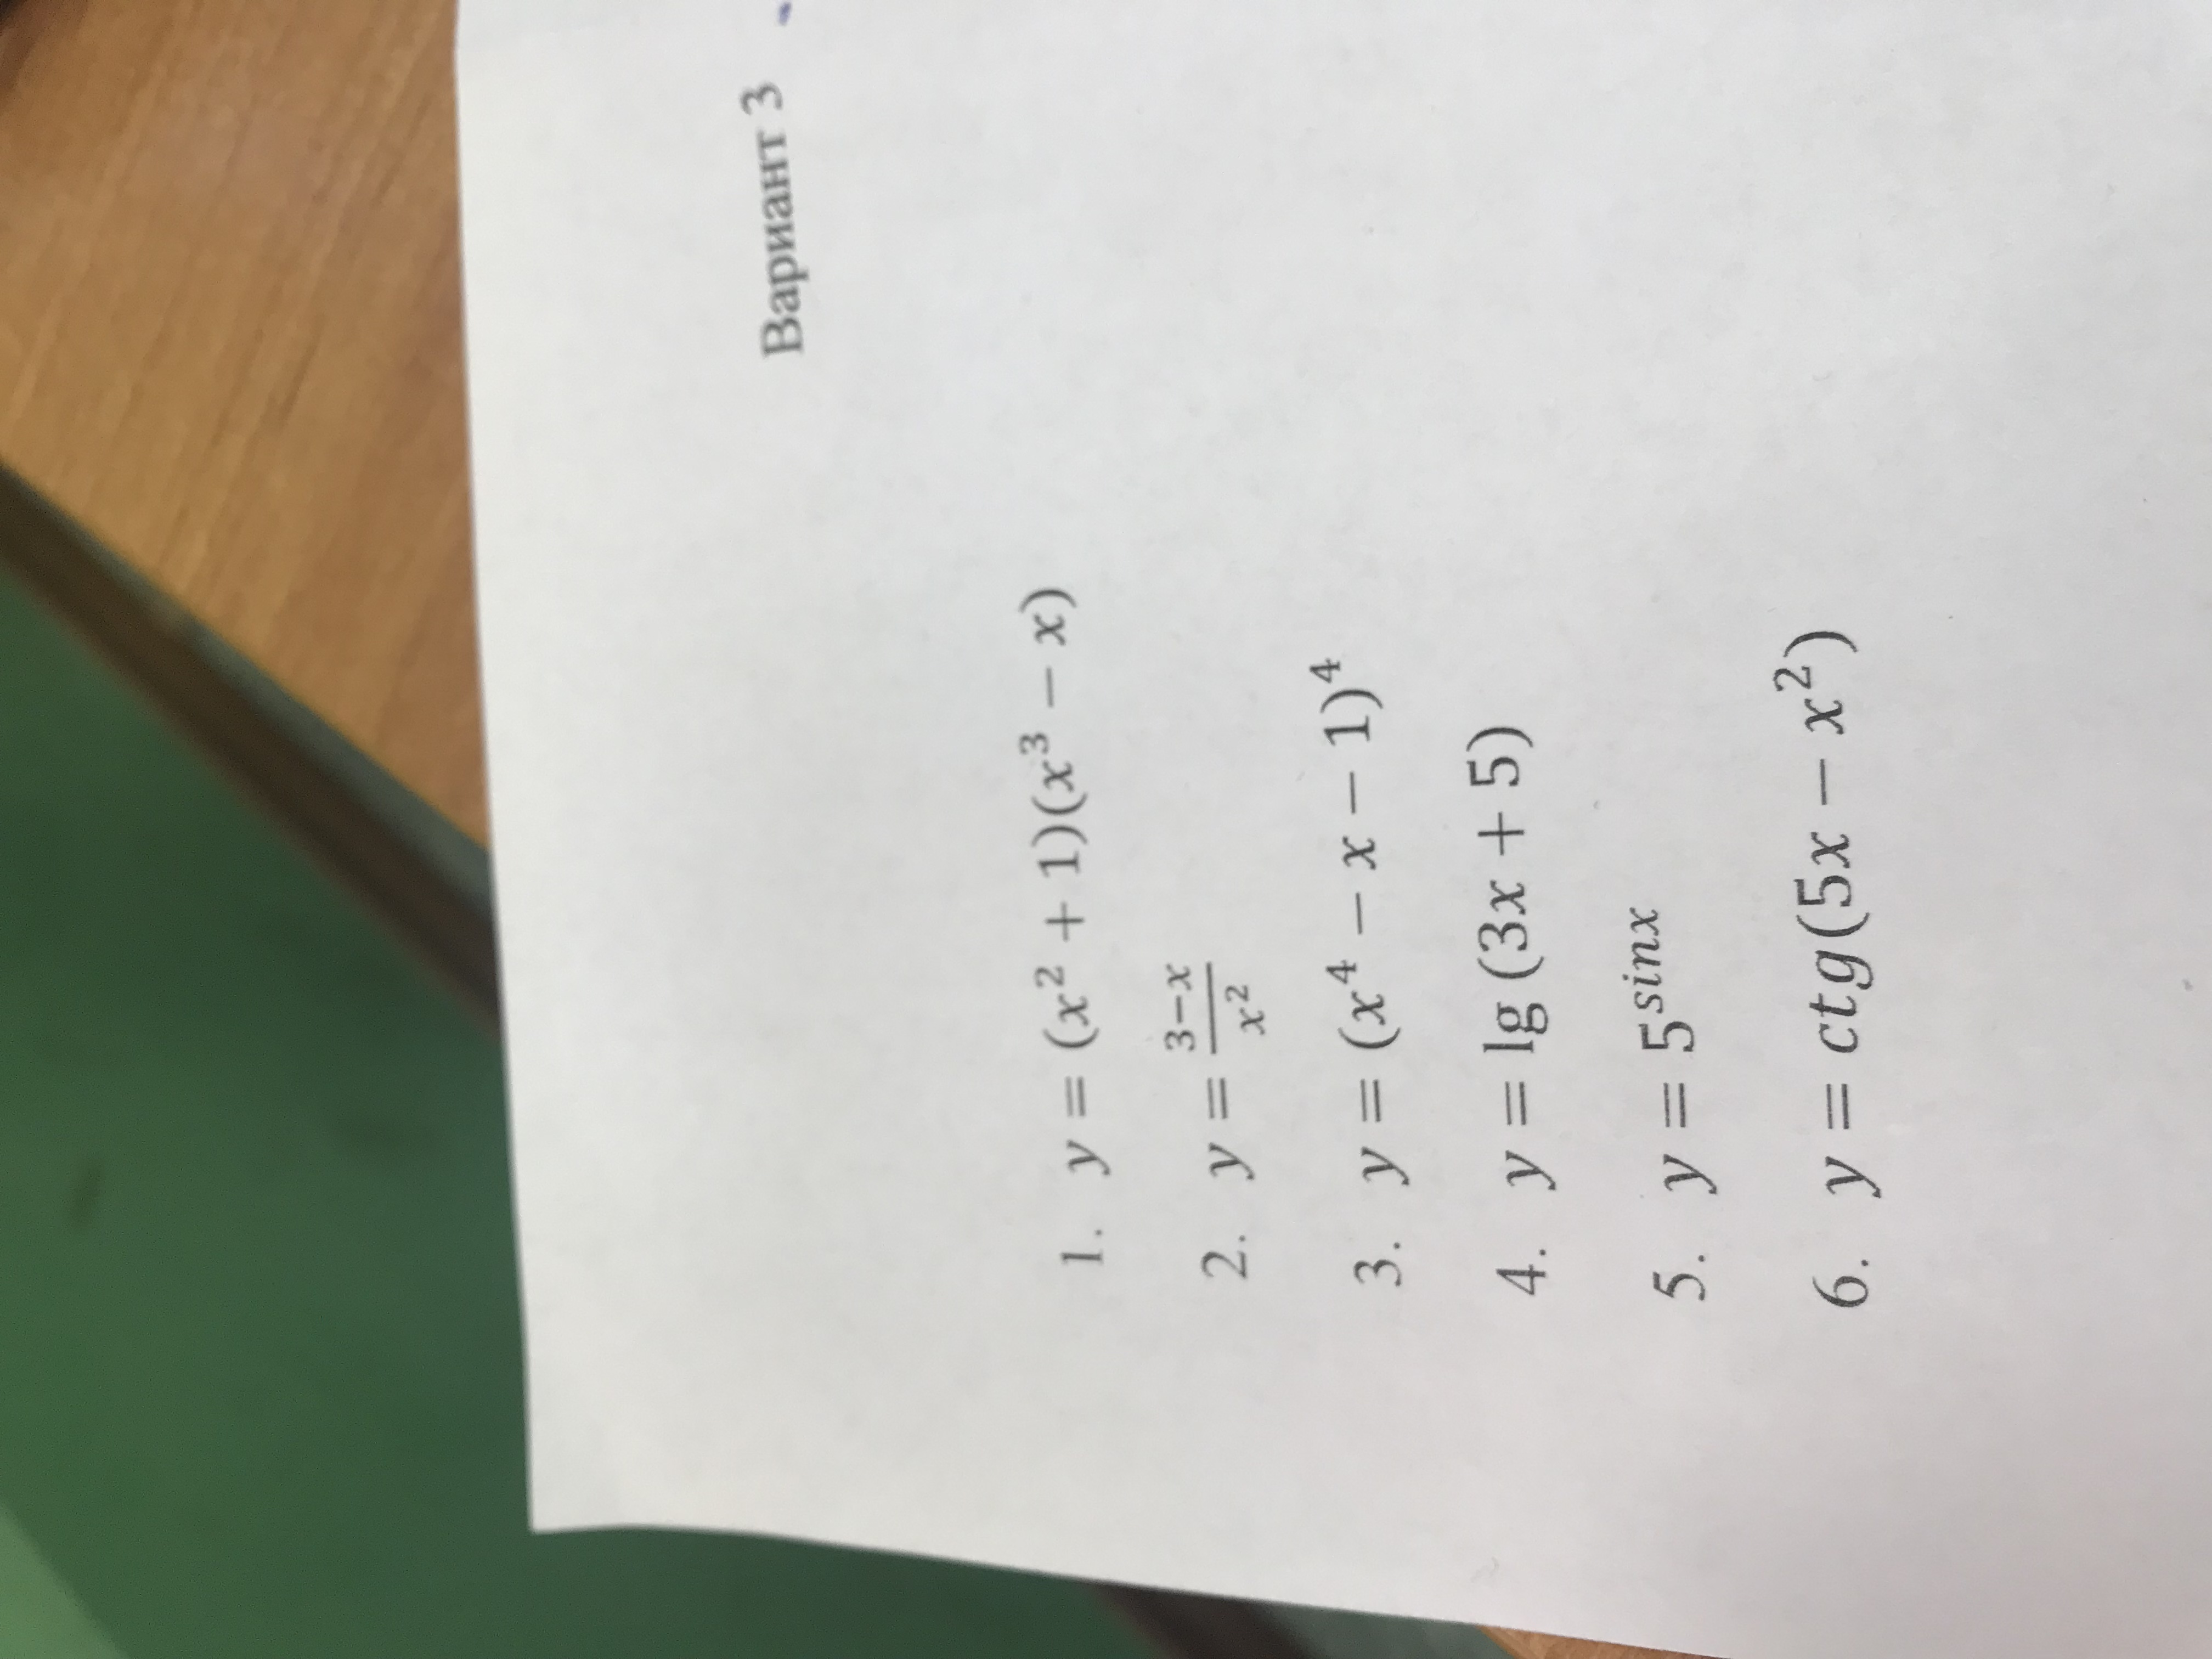 Вариант 3
1. y = (x² + 1)(x³ − x)
2. y = \frac{3−x}{x²}
3. y = (x⁴ − x − 1)⁴
4. y = lg (3x + 5)
5. y = 5^{sinx}
6. y = ctg(5x − x²)